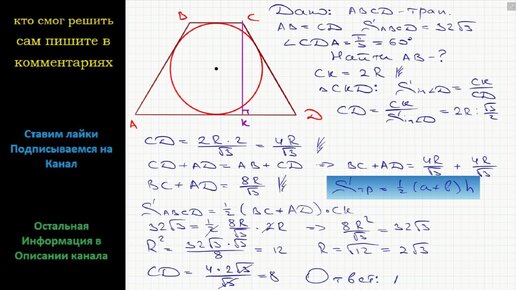 кто смог решить
сам пишите в
комментариях
Ставим лайки
Подписываемся на
Канал
Остальная
Информация в
Описании канала
B C
A K D
Дано: ABCD-трап.
AB = CD S ABCD = 32√3
∠CDA = π/3 = 60°
Найти AB-?
CK = 2R
△CKD: Sin∠D = CK/CD
CD = CK/Sin∠D = 2R : √3/2
CD = 2R·2/√3 = 4R/√3
CD + AD = AB + CD ⇒ BC + AD = 4R/√3 + 4R/√3
BC + AD = 8R/√3
Sтр = ½ (a+b) h
S ABCD = ½ (BC + AD) · CK
32√3 = ½ · 8R/√3 · 2R ⇒ 8R²/√3 = 32√3
R² = 32√3·√3/8 = 12 R = √12 = 2√3
CD = 4·2√3/√3 = 8 Ответ: